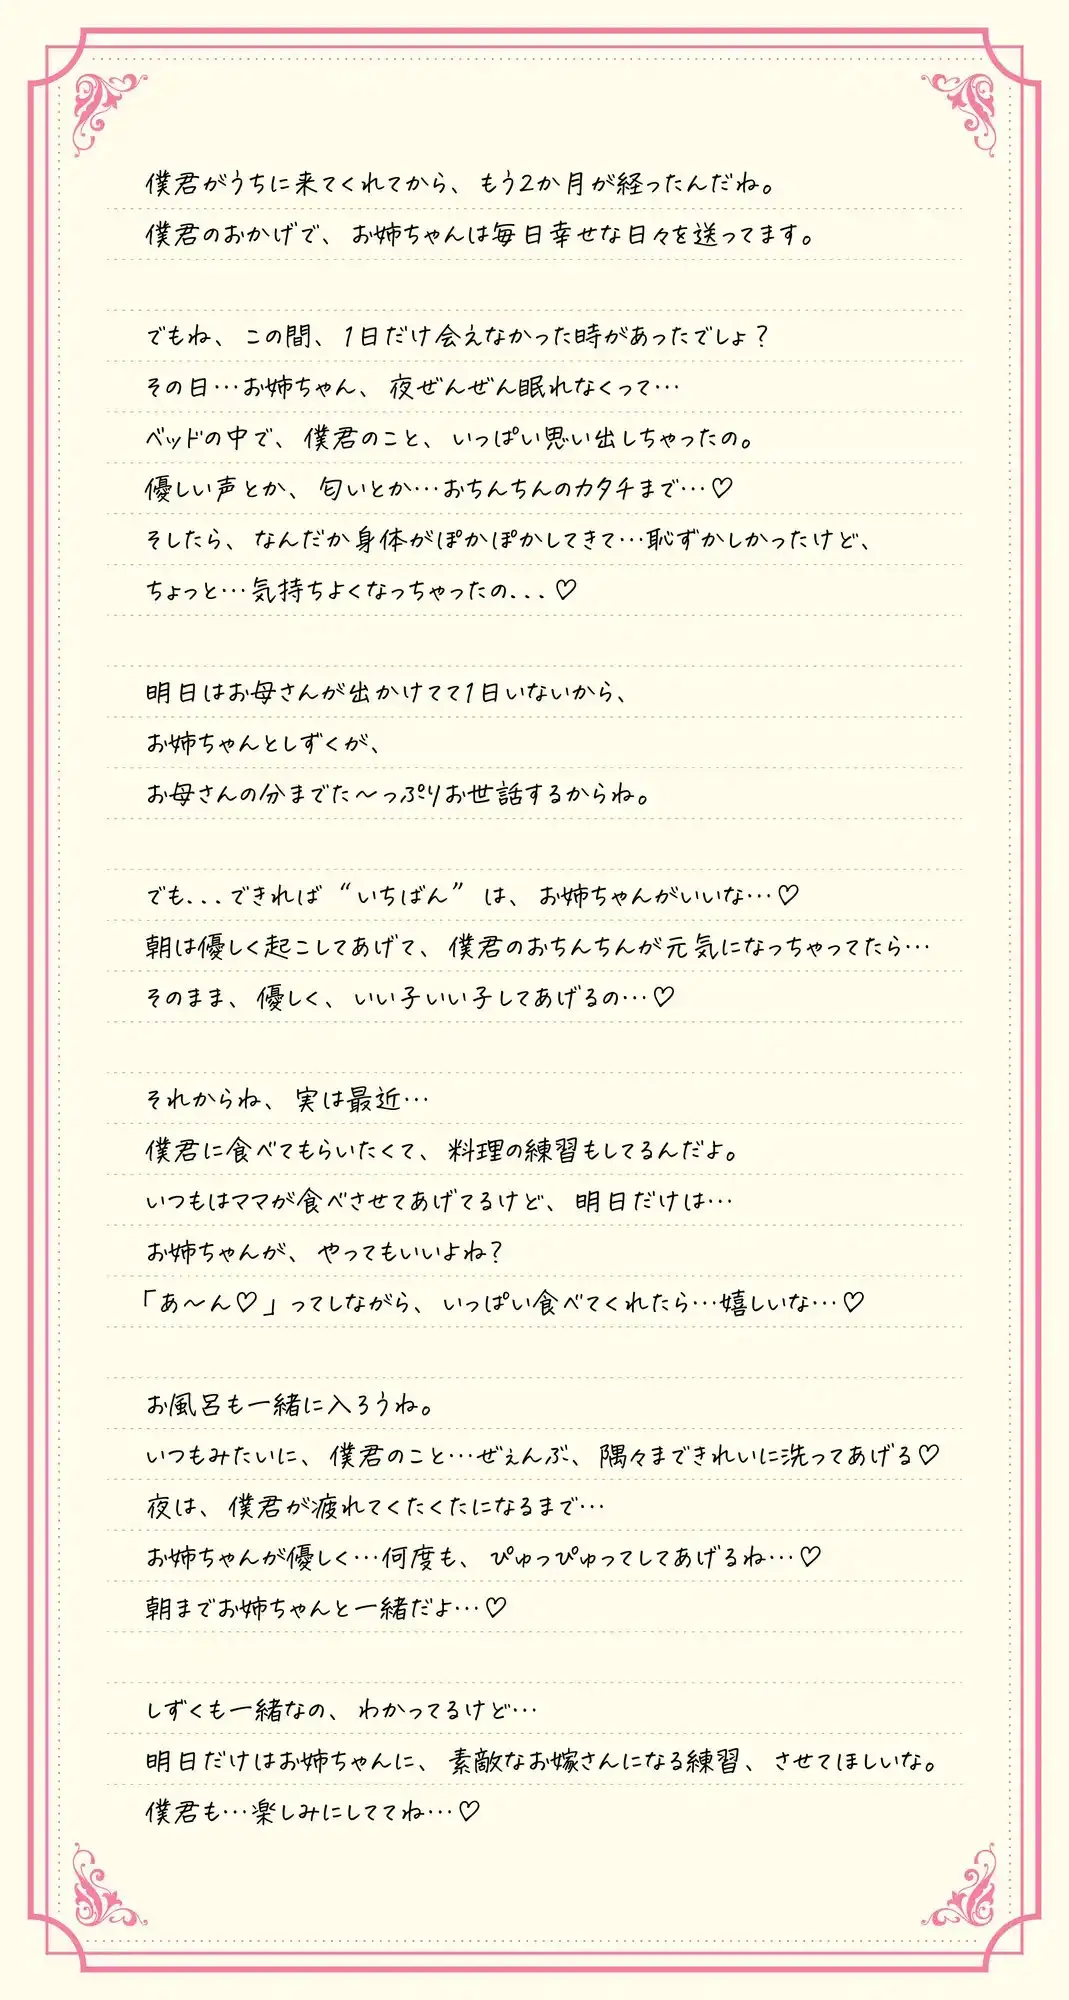 僕君がうちに来てくれてから、もう2か月が経ったんだね。
僕君のおかげで、お姉ちゃんは毎日幸せな日々を送ってます。
でもね、この間、1日だけ会えなかった時があったでしょ？
その日…お姉ちゃん、夜ぜんぜん眠れなくって…
ベッドの中で、僕君のこと、いっぱい思い出しちゃったの。
優しい声とか、匂いとか…おちんちんのカタチまで…♡
そしたら、なんだか身体がぽかぽかしてきて…恥ずかしかったけど、
ちょっと…気持ちよくなっちゃったの...♡
明日はお母さんが出かけてて1日いないから、
お姉ちゃんとしずくが、
お母さんの分までた～っぷりお世話するからね。
でも...できれば“いちばん”は、お姉ちゃんがいいな…♡
朝は優しく起こしてあげて、僕君のおちんちんが元気になっちゃってたら…
そのまま、優しく、いい子いい子してあげるの…♡
それからね、実は最近…
僕君に食べてもらいたくて、料理の練習もしてるんだよ。
いつもはママが食べさせてあげてるけど、明日だけは…
お姉ちゃんが、やってもいいよね？
「あ～ん♡」ってしながら、いっぱい食べてくれたら…嬉しいな…♡
お風呂も一緒に入ろうね。
いつもみたいに、僕君のこと…ぜぇんぶ、隅々まできれいに洗ってあげる♡
夜は、僕君が疲れてくたくたになるまで…
お姉ちゃんが優しく…何度も、ぴゅっぴゅってしてあげるね…♡
朝までお姉ちゃんと一緒だよ…♡
しずくも一緒なの、わかってるけど…
明日だけはお姉ちゃんに、素敵なお嫁さんになる練習、させてほしいな。
僕君も…楽しみにしててね…♡